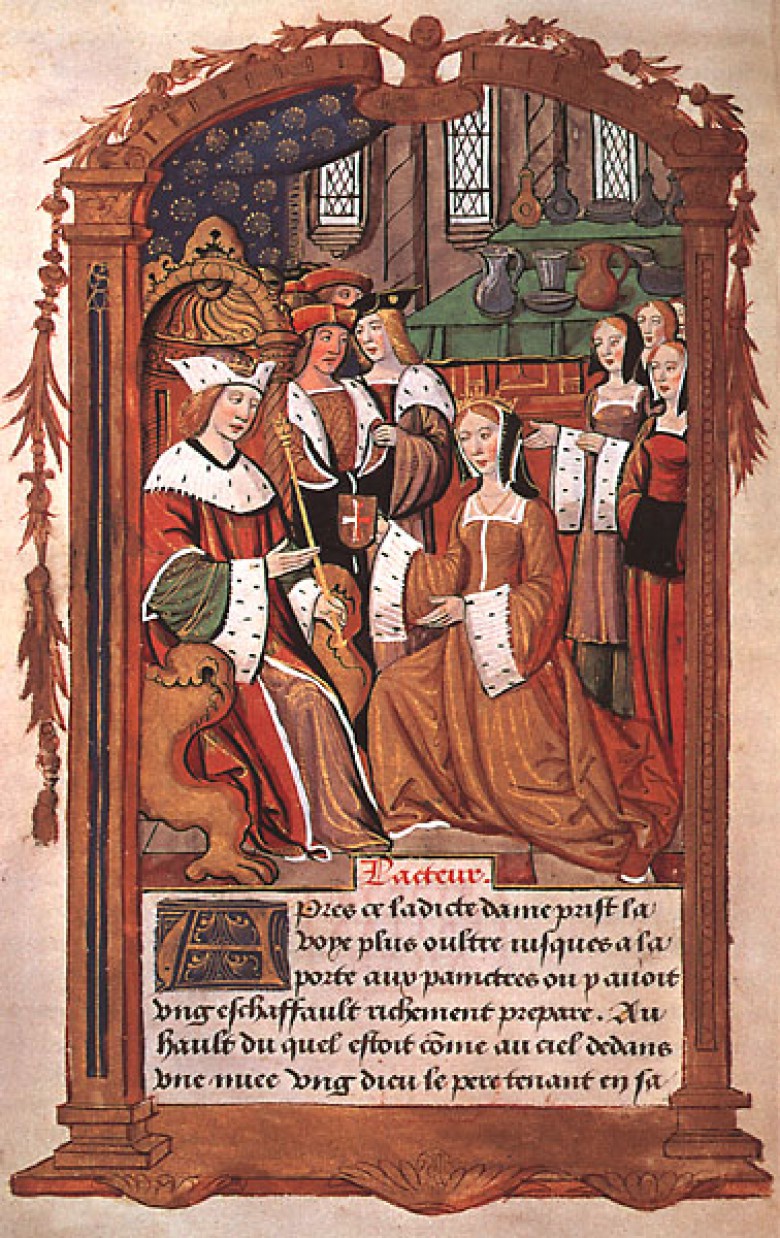 L'acteur.
Apres ce ladicte dame prist la
voye plus oultre iusques a la
porte aux painctres ou y auoit
vng eschaffault richement prepare. Au
hault du quel estoit cōme au ciel dedans
vne nuee vng dieu le pere tenant en sa